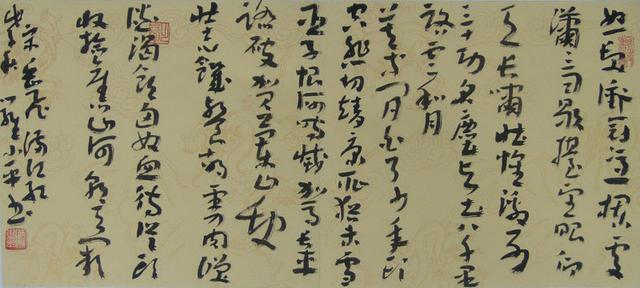 怒髮衝冠憑欄處
瀟瀟雨歇擡望眼仰
天長嘯壯懷激烈
三十功名塵與土八千里
路雲和月
莫等閒白了少年頭
空悲切靖康恥猶未雪
臣子恨何時滅駕長車
踏破賀蘭山缺
壯志饑餐胡虜肉笑
談渴飲匈奴血待從頭
收拾舊山河朝天闕
宋岳飛滿江紅
小平書